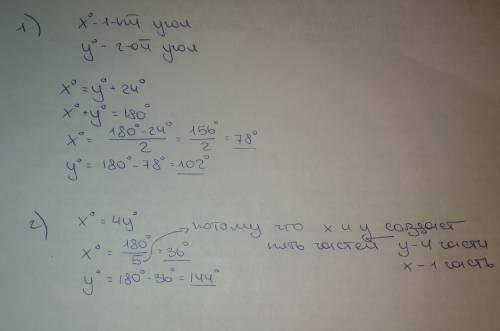 1) x° - 1-ый угол
y° - 2-ой угол
x° = y° + 24°
x° + y° = 180°
x° = (180° - 24°)/2 = 156°/2 = 78°
y° = 180° - 78° = 102°
2) x° = 4y°
x° = 180°/5 = 36°
y° = 180° - 36° = 144°
потому что x и y создаёт
пять частей y - 4 части
x - 1 часть